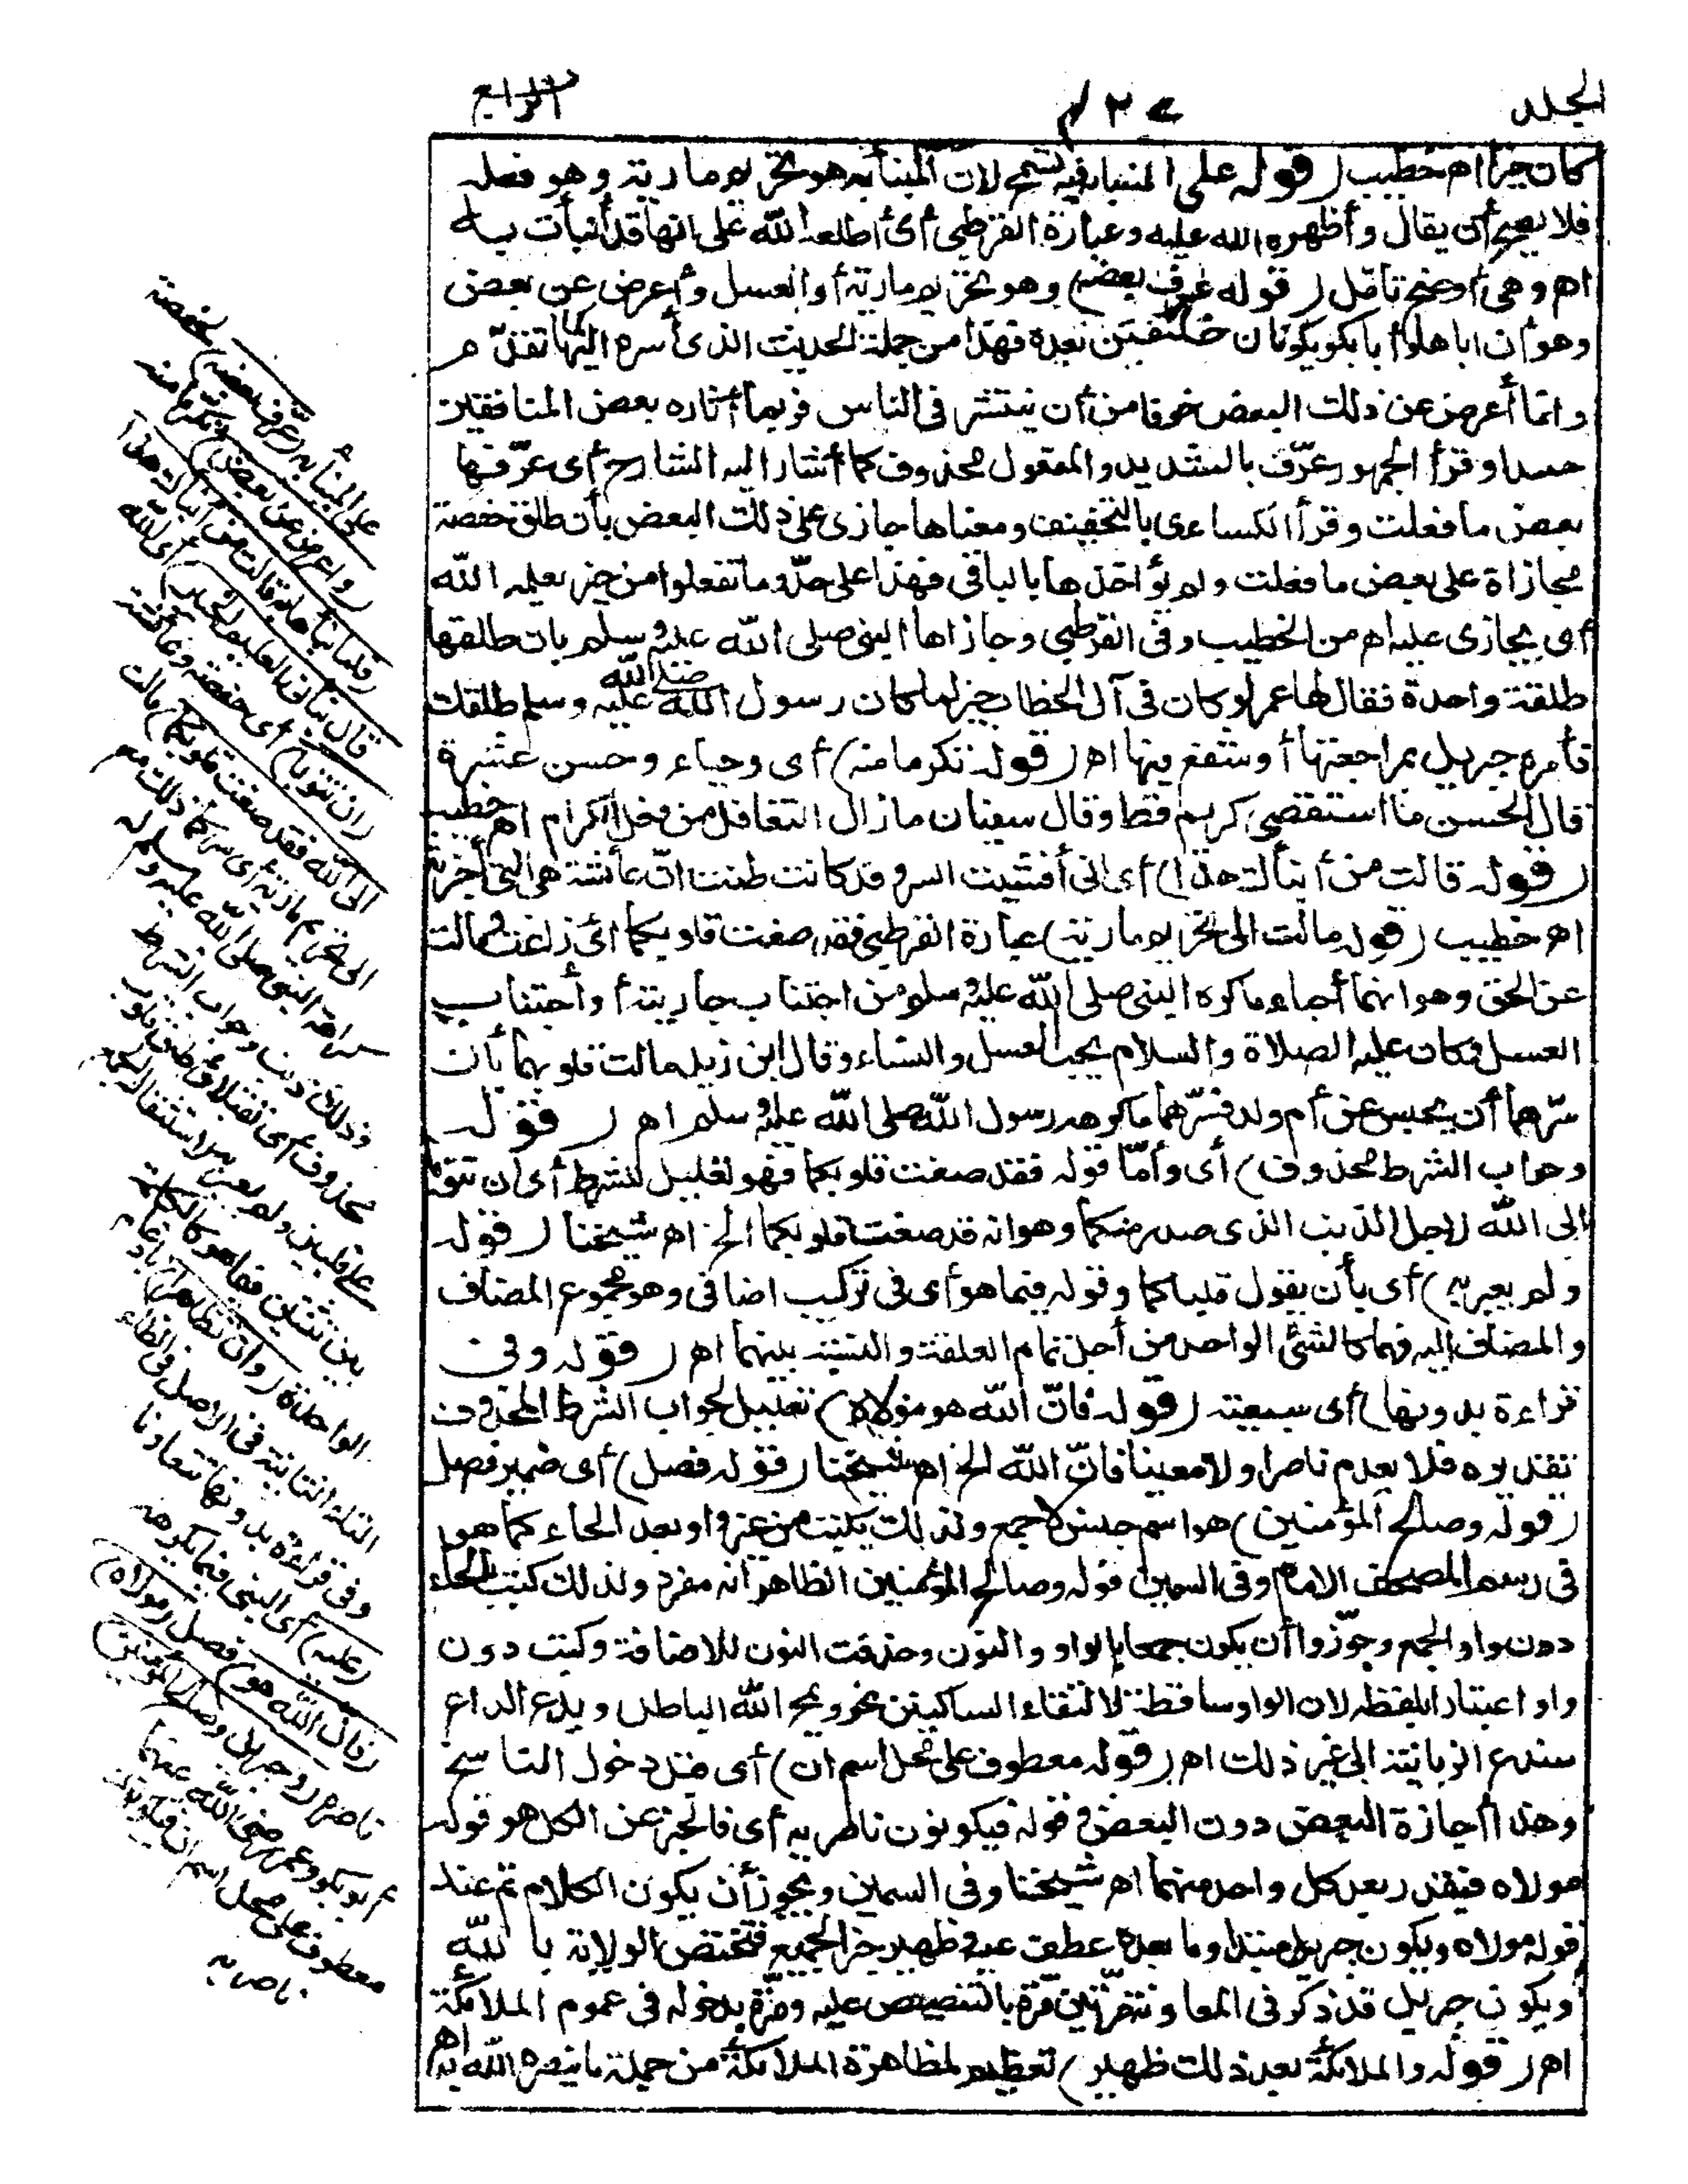 الجلد ٤٢٧ الرابع
كان خيرا اه خطيب (قوله على المنبأ به) فيه تسمح لان المنبأ به هو تحريم مارية وهو فعله
فلا يصح أن يقال وأظهره الله عليه وعبارة القرطبي أى أطلعه الله على انها قد أنبأت به
اه وهى أوضح تأمل (قوله عرف بعضه) وهو تحريم مارية أو العسل وأعرض عن بعض
وهو أن أباها وأبا بكر يكونان خليفتين بعده فهذا من جملة الحديث الذى أسره اليها كما تقدم
وانما أعرض عن ذلك البعض خوفا من أن ينتشر فى الناس فربما أثاره بعض المنافقين
حسدا وقرأ الجمهور عرّف بالتشديد والمفعول محذوف كما أشار اليه الشارح أى عرّفها
بعض ما فعلت وقرأ الكساءى بالتخفيف ومعناها جازى على ذلك البعض بأن طلق حفصة
مجازاة على بعض ما فعلت ولم يؤاخذها بالباقى فهذا على حدّ وما تفعلوا من خير يعلمه الله
أى يجازى عليه اه من الخطيب وفى القرطبي وجازاها النبى صلى الله عليه وسلم بان طلقها
طلقة واحدة فقال لها عمر لو كان فى آل الخطاب خير لما كان رسول الله صلى الله عليه وسلم طلقك
فأمره جبريل بمراجعتها أو شفع فيها اه (قوله تكرما منه) أى وحياء وحسن عشرة
قال الحسن ما استقصى كريم قط وقال سفيان ما زال التغافل من فعل الكرام اه خطيب
(قوله قالت من أنبأك هذا) أى انى أفشيت السر وقد كانت ظنت انّ عائشة هى التى أخبرته
اه خطيب (قوله مالت الى تحريم مارية) عبارة القرطبى فقد صغت قلوبكما اى زاغت ومالت
عن الحق وهو انهما أحباء ما كره النبى صلى الله عليه وسلم من اجتناب جاريته أو اجتناب
العسل وكان عليه الصلاة والسلام يحب العسل والنساء وقال ابن زيد مالت قلوبهما بأن
سرّهما أن يحبس عن أم ولده فسرّهما ما كرهه رسول الله صلى الله عليه وسلم اه (قوله
وجواب الشرط محذوف) أى وأمّا قوله فقد صغت قلوبكما فهو تعليل للشرط أى ان تتوبا
الى الله لاجل الذنب الذى صدر منكما وهو انه قد صغت قلوبكما الخ اه شيخنا (قوله
ولم يعبر به) أى بأن يقول قلباكما وقوله فيما هو أى فى تركيب اضافى وهو مجموع المضاف
والمضاف اليه فهما كالشئ الواحد من أجل تمام العلقة والنسبة بينهما اه (قوله وفى
قراءة بدونها) أى سبعية (قوله فانّ الله هو مولاه) تعليل لجواب الشرط المحذوف
تقديره فلا يعدم ناصرا ولا معينا فانّ الله الخ اه شيخنا (قوله فصل) أى ضمير فصل
(قوله وصالح المؤمنين) هو اسم جنس لا جمع ولذلك يكتب من غير واو بعد الحاء كما هو
فى رسم المصحف الامام وفى السمين قوله وصالح المؤمنين الظاهر انه مفرد ولذلك كتبت الحاء
دون واو الجمع وجوّزوا أن يكون جمعا بالواو والنون وحذفت النون للاضافة وكتب دون
واو اعتبارا بلفظه لان الواو ساقطة لالتقاء الساكنين نحو ويمح الله الباطل ويدع الداع
سندع الزبانية الى غير ذلك اه (قوله معطوف على محل اسم ان) أى قبل دخول الناسخ
وهذا أجازه البعض دون البعض وقوله فيكونون ناصريه أى فالخبر عن الكل هو قوله
مولاه فيقدر بعد كل واحد منهما اه شيخنا وفى السمين ويجوز أن يكون الكلام تم عند
قوله مولاه ويكون جبريل مبتدا وما بعده عطف عليه وظهير خبر الجميع فتختص الولاية بالله
ويكون جبريل قد ذكر فى المعاونة مرّتين مرّة بالتنصيص عليه ومرّة بدخوله فى عموم الملائكة
اه (قوله والملائكة بعد ذلك ظهير) تعظيم لمظاهرة الملائكة من جملة ما ينصره الله به اه
على المنبأ به (عرّف بعضه) لحفصة
(وأعرض عن بعض) تكرما منه
(فلما نبأها به قالت من أنبأك هذا
قال نبأنى العليم الخبير) أى الله
(ان تتوبا) أى حفصة وعائشة
(الى الله فقد صغت قلوبكما) مالت
الى تحريم مارية أى سركما ذلك مع
كراهة النبى صلى الله عليه وسلم له
وذلك ذنب وجواب الشرط
محذوف أى تقبلا وأطلق قلوب
على قلبين ولم يعبر به لاستثقال الجمع
بين تثنيتين فيما هو كالكلمة
الواحدة (وان تظاهرا) بادغام
التاء الثانية فى الاصل فى الظاء
وفى قراءة بدونها تتعاونا
(عليه) أى النبى فيما يكرهه
(فان الله هو) فصل (مولاه)
ناصره (وجبريل وصالح المؤمنين)
أبو بكر وعمر رضى الله عنهما
معطوف على محل اسم ان فيكونون
ناصريه